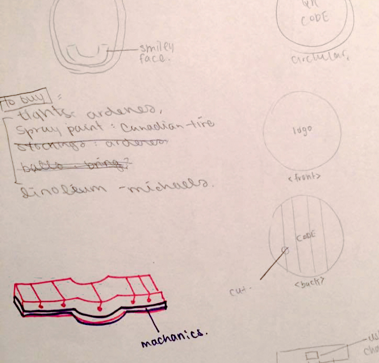 QR
CODE
smiley
face.
circular.
To buy:
tights: ardenes,
Spray paint: Canadian-tire
stockings: ardenes
balls: bring,
linoleum - michaels.
logo
<front>
CODE
cut.
<back>
machanics.